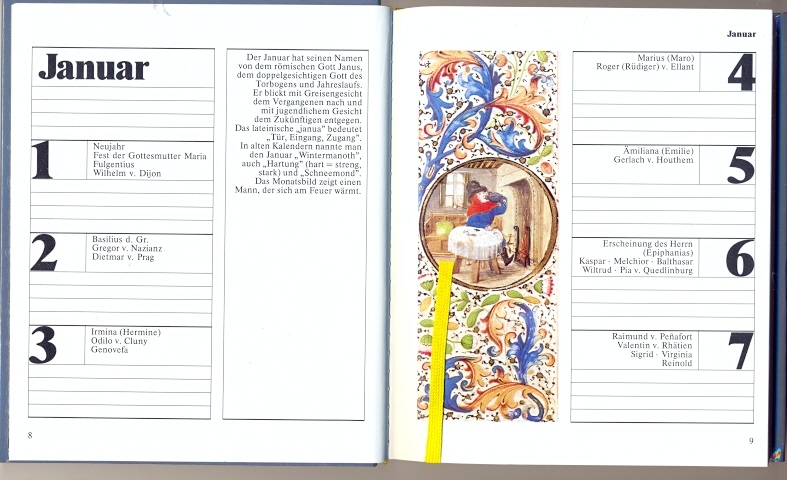 Januar
1
Neujahr
Fest der Gottesmutter Maria
Fulgentius
Wilhelm v. Dijon
2
Basilius d. Gr.
Gregor v. Nazianz
Dietmar v. Prag
3
Irmina (Hermine)
Odilo v. Cluny
Genovefa
8
Der Januar hat seinen Namen
von dem römischen Gott Janus,
dem doppelgesichtigen Gott des
Torbogens und Jahreslaufs.
Er blickt mit Greisengesicht
dem Vergangenen nach und
mit jugendlichem Gesicht
dem Zukünftigen entgegen.
Das lateinische „janua" bedeutet
„Tür, Eingang, Zugang".
In alten Kalendern nannte man
den Januar „Wintermanoth",
auch „Hartung" (hart = streng,
stark) und „Schneemond".
Das Monatsbild zeigt einen
Mann, der sich am Feuer wärmt.
Januar
Marius (Maro)
Roger (Rüdiger) v. Ellant
4
Ämiliana (Emilie)
Gerlach v. Houthem
5
Erscheinung des Herrn
(Epiphanias)
Kaspar · Melchior · Balthasar
Wiltrud · Pia v. Quedlinburg
6
Raimund v. Peñafort
Valentin v. Rhätien
Sigrid · Virginia
Reinold
7
9